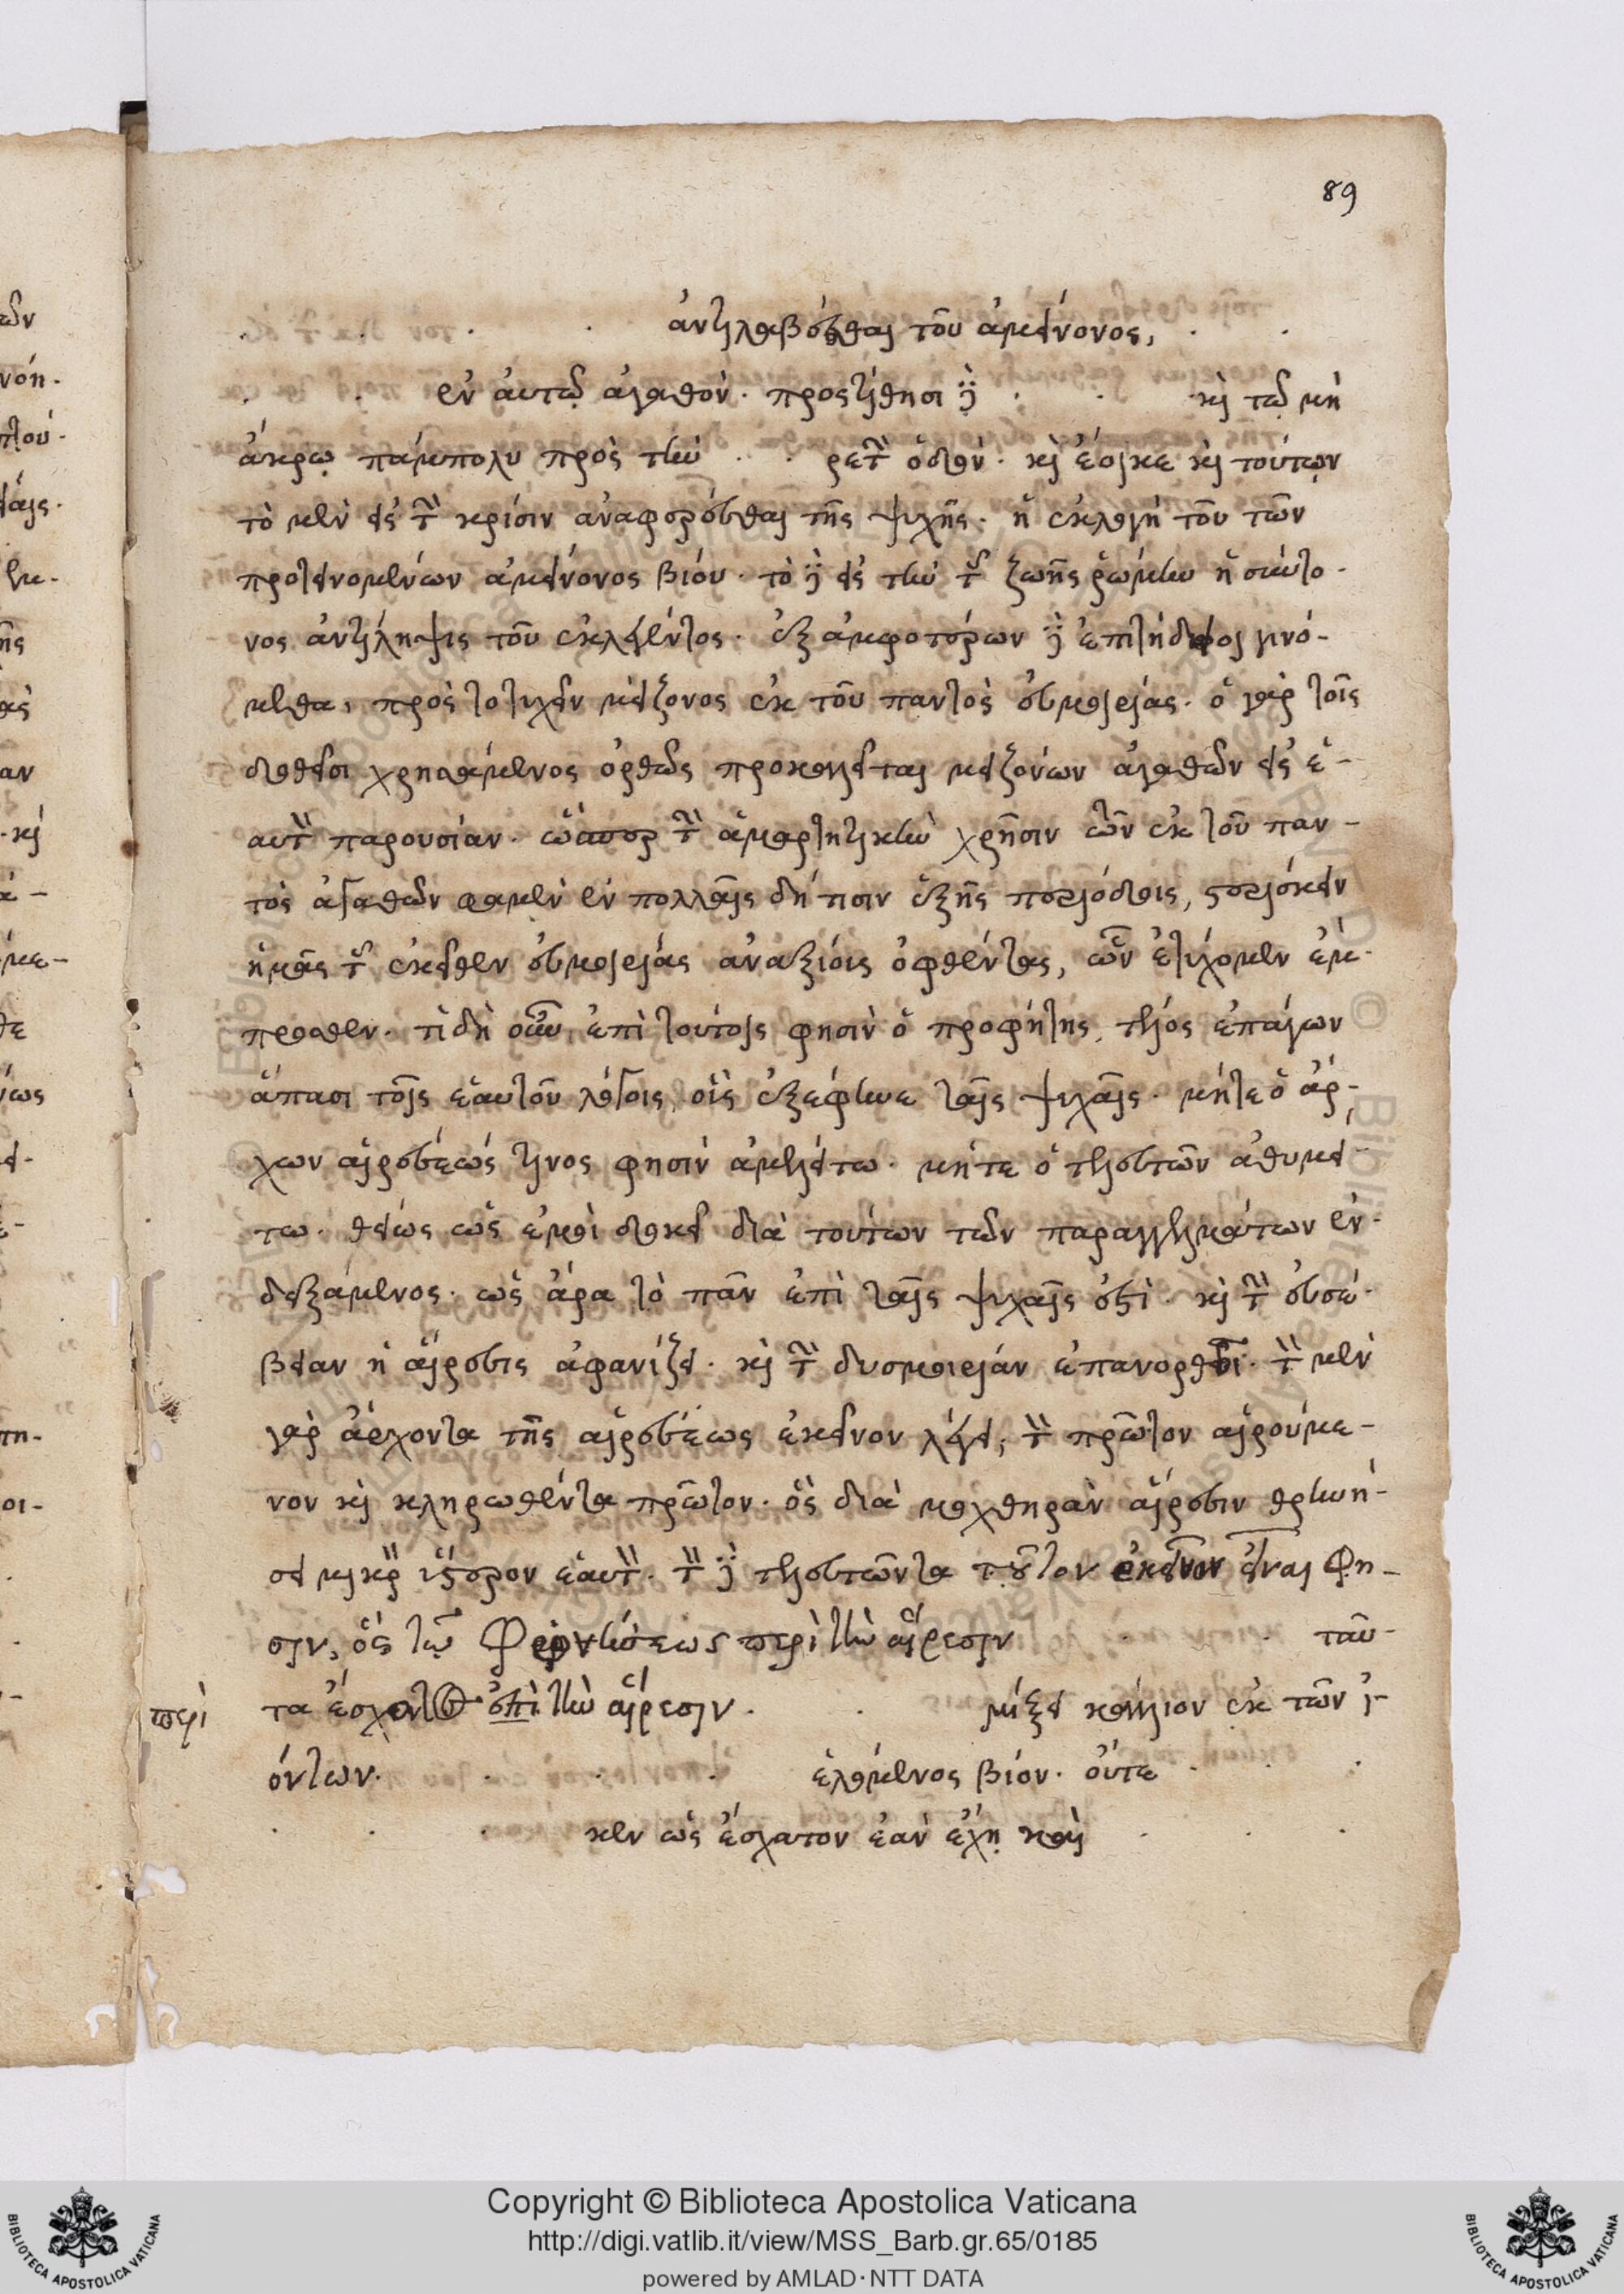 89
ἀντιλαβέσθαι τοῦ ἀμείνονος,
ἐν αὐτῷ ἀγαθόν· προστίθησι δὲ καὶ τῷ μὴ
ἄκρῳ πάμπολυ πρὸς τὴν ρετὴν ὁδόν· καὶ ἔοικε καὶ τούτων
τὸ μὲν εἰς τὴν κρίσιν ἀναφέρεσθαι τῆς ψυχῆς· ἡ ἐκλογὴ τοῦ τῶν
προτεινομένων ἀμείνονος βίου· τὸ δὲ εἰς τὴν τῆς ζωῆς ῥώμην ἡ σύντο-
νος ἀντίληψις τοῦ ἐκλεγέντος· ἐξ ἀμφοτέρων δὲ ἐπιτήδειοι γινό-
μεθα, πρὸς τὸ τυχεῖν μείζονος ἐκ τοῦ παντὸς εὐμοιρίας· ὁ γὰρ τοῖς
δοθεῖσι χρησάμενος ὀρθῶς προκαλεῖται μειζόνων ἀγαθῶν εἰς ἑ-
αυτὸν παρουσίαν· ὥσπερ τὴν ἁμαρτητικὴν χρῆσιν ὧν ἐκ τοῦ παν-
τὸς ἀγαθῶν φαμὲν ἐν πολλαῖς δή τισιν ἑξῆς περιόδοις, στερίσκειν
ἡμᾶς τῆς ἐκεῖθεν εὐμοιρίας ἀναξίοις ὀφθέντας, ὧν ἐτύχομεν ἔμ-
προσθεν· τί δὴ οὖν ἐπὶ τούτοις φησὶν ὁ προφήτης, τέλος ἐπάγων
ἅπασι τοῖς ἑαυτοῦ λόγοις, οἷς ἐξέφηνε ταῖς ψυχαῖς· μήτε ὁ ἄρ-
χων αἱρέσεώς τινος φησὶν ἀμελείτω· μήτε ὁ τελευτῶν ἀθυμεί-
τω· θείως ὡς ἐμοὶ δοκεῖ διὰ τούτων τῶν παραγγελμάτων ἐν-
δειξάμενος· ὡς ἄρα τὸ πᾶν ἐπὶ ταῖς ψυχαῖς ἐστὶ· καὶ τὴν εὐσέ-
βειαν ἡ αἵρεσις ἀφανίζει· καὶ τὴν δυσμοιρίαν ἐπανορθοῖ· τὸν μὲν
γὰρ ἄρχοντα τῆς αἱρέσεως ἐκεῖνον λέγει, τὸν πρῶτον αἱρούμε-
νον καὶ κληρωθέντα πρῶτον· ὃς διὰ μοχθηρὰν αἵρεσιν θρηνή-
σει μικρὸν ὕστερον ἑαυτόν· τὸν δὲ τελευτῶντα τοῦτον ἐκεῖνον εἶναι φη-
σιν, ὃς τῷ φρονήσεως περὶ τὴν αἵρεσιν ταῦ-
περὶ τα ἔσχοντος ἐπὶ τὴν αἵρεσιν. μίξει κάλλιον ἐκ τῶν ἰ-
όντων· ἑλόμενος βίον· οὔτε
μεν ὡς ἔσχατον ἐὰν ἔχῃ καὶ
Copyright © Biblioteca Apostolica Vaticana
http://digi.vatlib.it/view/MSS_Barb.gr.65/0185
powered by AMLAD·NTT DATA
BIBLIOTECA APOSTOLICA VATICANA
BIBLIOTECA APOSTOLICA VATICANA